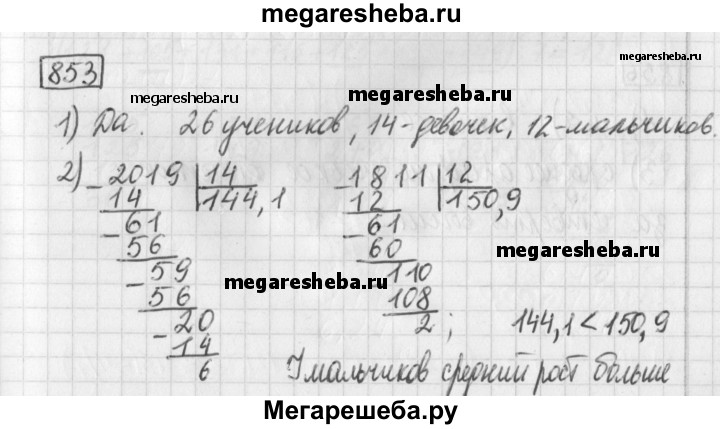 megaresheba.ru
853
megaresheba.ru
megaresheba.ru
megaresheba.ru
1) Да. 26 учеников, 14-девочек, 12-мальчиков.
2) - 2019 | 14 - 1811 | 12
14 144,1 12 150,9
- 61 - 61
56 60
- 59 110
56 108
- 20 2; 144,1 < 150,9
14
6 У мальчиков средний рост больше
megaresheba.ru
megaresheba.ru
Мегарешеба.ру